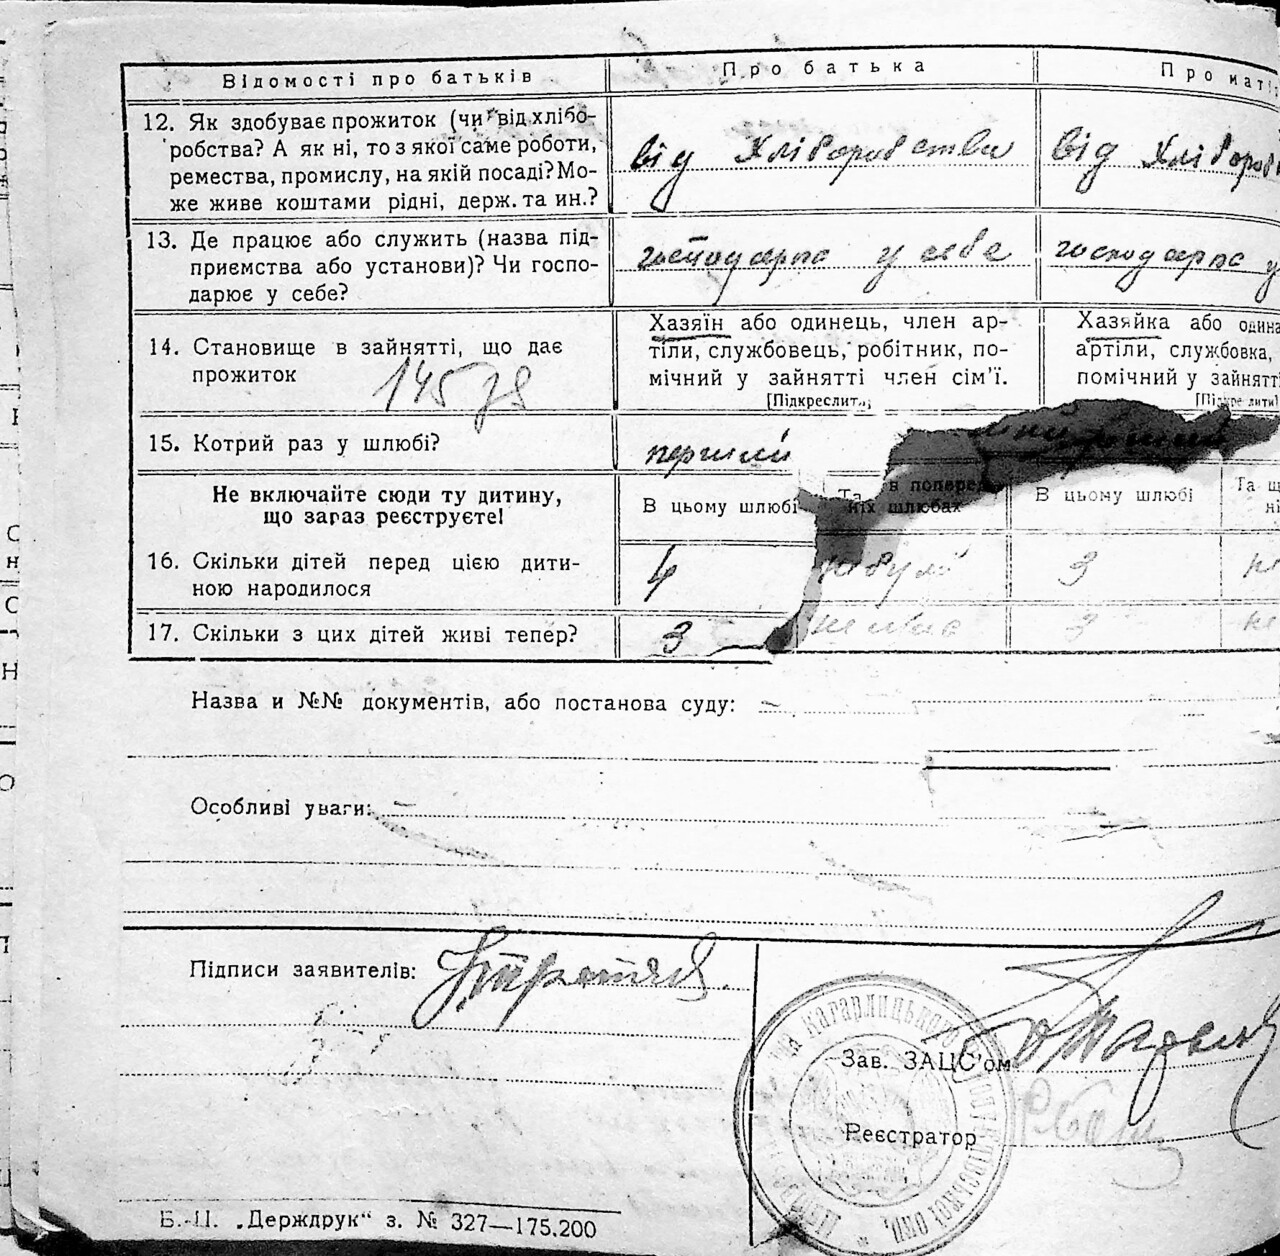 Відомості про батьків
Про батька
Про маті
12. Як здобуває прожиток (чи від хлібо-
робства? А як ні, то з якої саме роботи,
ремества, промислу, на якій посаді? Мо-
же живе коштами рідні, держ. та ин.?
від Хліборобства
від Хлібороб
13. Де працює або служить (назва під-
приємства або установи)? Чи госпо-
дарює у себе?
господарює у себе
господарює у
14. Становище в зайнятті, що дає
прожиток
145
Хазяїн або одинець, член ар-
тіли, службовець, робітник, по-
мічний у зайнятті член сім'ї.
[Підкреслить]
Хазяйка або одина
артіли, службовка,
помічний у зайнятті
[Підкреслити]
15. Котрий раз у шлюбі?
перший
Не включайте сюди ту дитину,
що зараз реєструєте!
В цьому шлюбі
Та в поперед
ніх шлюбах
В цьому шлюбі
Та щ
ні
16. Скільки дітей перед цією дити-
ною народилося
4
3
17. Скільки з цих дітей живі тепер?
3
немає
3
не
Назва и №№ документів, або постанова суду:
Особливі уваги:
Підписи заявителів:
Кагарлицького
Зав. ЗАЦС'ом
Реєстратор
Б.-Ц. „Держдрук“ з. № 327—175.200